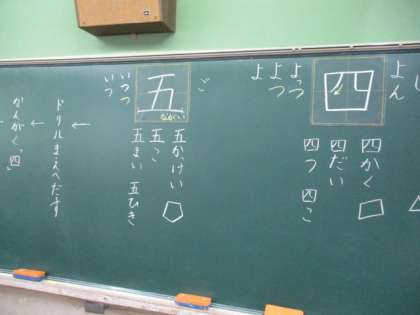 よん
四
よっつ
よつ
よ
四かく
四だい
四つ 四こ
ご
五
ながい
いつつ
いつ
五かけい
五こ
五まい 五ひき
ドリルまえへだす
かんがく「四」